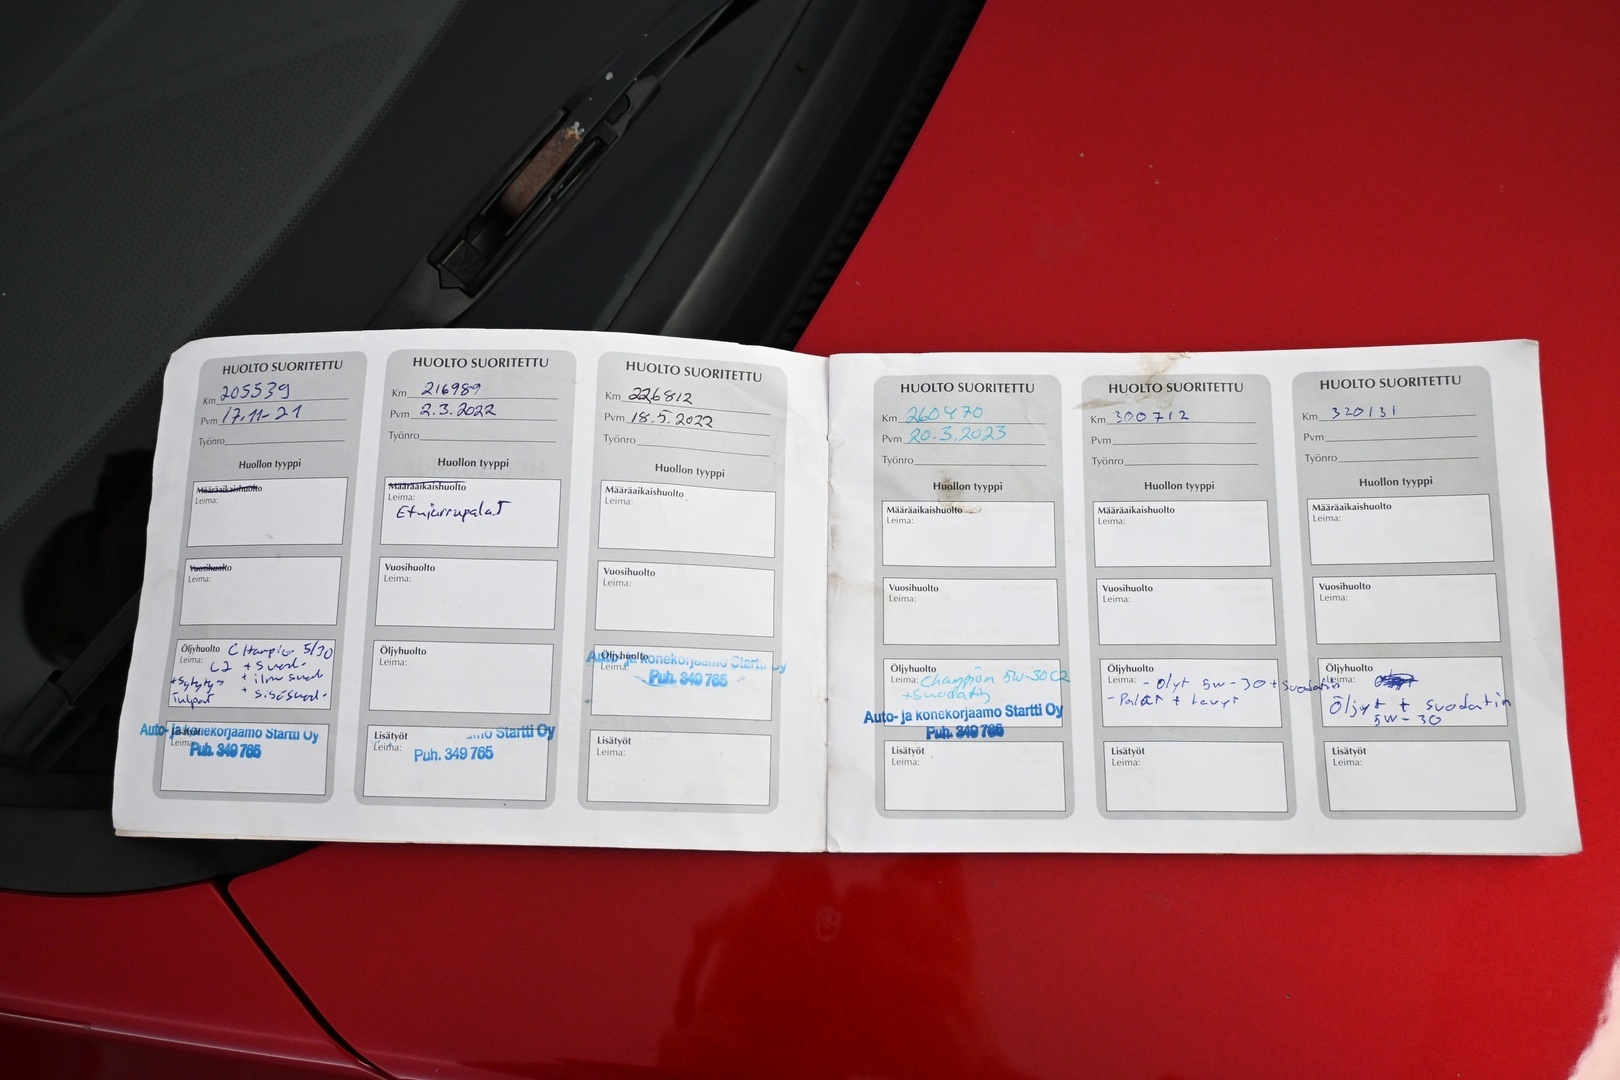 HUOLTO SUORITETTU
Km 205539
Pvm 17.11-21
Työnro
Huollon tyyppi
Määräaikaishuolto
Leima:
Vuosihuolto
Leima:
Öljyhuolto Champion 5/30
Leima: C2 + suod.
+ Sytytys + ilm suod
Tulpat + sisäsuod.
Auto- ja konekorjaamo Startti Oy
Leima: Puh. 349 765
HUOLTO SUORITETTU
Km 216989
Pvm 2.3.2022
Työnro
Huollon tyyppi
Määräaikaishuolto
Leima:
Etujarrupalat
Vuosihuolto
Leima:
Öljyhuolto
Leima:
Lisätyöt
Startti Oy
Leima:
Puh. 349 765
HUOLTO SUORITETTU
Km 226812
Pvm 18.5.2022
Työnro
Huollon tyyppi
Määräaikaishuolto
Leima:
Vuosihuolto
Leima:
Öljyhuolto
Auto- ja konekorjaamo Startti Oy
Leima:
Puh. 349 765
Lisätyöt
Leima:
HUOLTO SUORITETTU
Km 260470
Pvm 20.3.2023
Työnro
Huollon tyyppi
Määräaikaishuolto
Leima:
Vuosihuolto
Leima:
Öljyhuolto
Leima: Champion 5W-30 C2
+Suodatin
Auto- ja konekorjaamo Startti Oy
Puh. 349 765
Lisätyöt
Leima:
HUOLTO SUORITETTU
Km 300712
Pvm
Työnro
Huollon tyyppi
Määräaikaishuolto
Leima:
Vuosihuolto
Leima:
Öljyhuolto
Leima: - Öljyt 5W-30 + suodatin
- Palat + Levyt
Lisätyöt
Leima:
HUOLTO SUORITETTU
Km 320131
Pvm
Työnro
Huollon tyyppi
Määräaikaishuolto
Leima:
Vuosihuolto
Leima:
Öljyhuolto
Leima:
Öljyt + suodatin
5W-30
Lisätyöt
Leima: